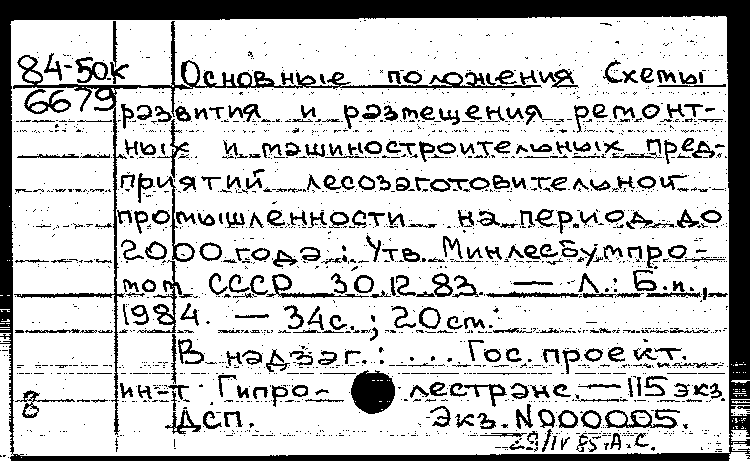 84-50к Основные положения Схемы
6679 развития и размещения ремонт-
ных и машиностроительных пред-
приятий лесозаготовительной
промышленности на период до
2000 года : Утв. Минлесбумпро-
мом СССР 30.12.83 — Л.: Б.и.,
1984. — 34с. ; 20см.
В надзаг.: ... Гос. проект.
ин-т Гипролестранс. — 115 экз.
8 ДСП. Экз. N000005.
29/IV 85. А.С.